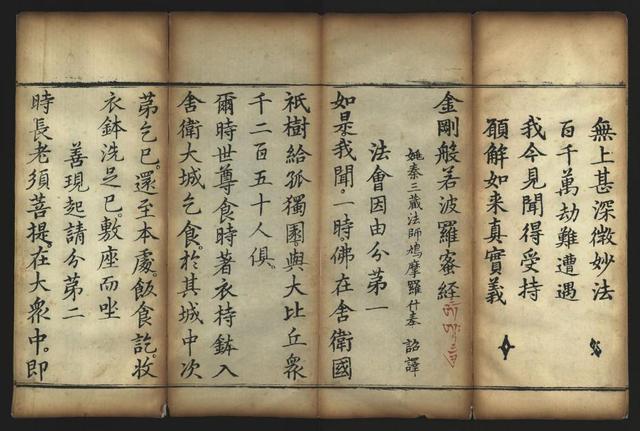 無上甚深微妙法
百千萬劫難遭遇
我今見聞得受持
願解如来真實義
金剛般若波羅蜜經
姚秦三藏法師鳩摩羅什奉 詔譯
法會因由分第一
如是我聞。一時。佛在舍衛國
祇樹給孤獨園。與大比丘衆
千二百五十人俱。
爾時世尊食時著衣持鉢入
舍衛大城乞食。於其城中次
第乞已。還至本處。飯食訖。收
衣鉢洗足已。敷座而坐
善現起請分第二
時長老須菩提。在大衆中。即